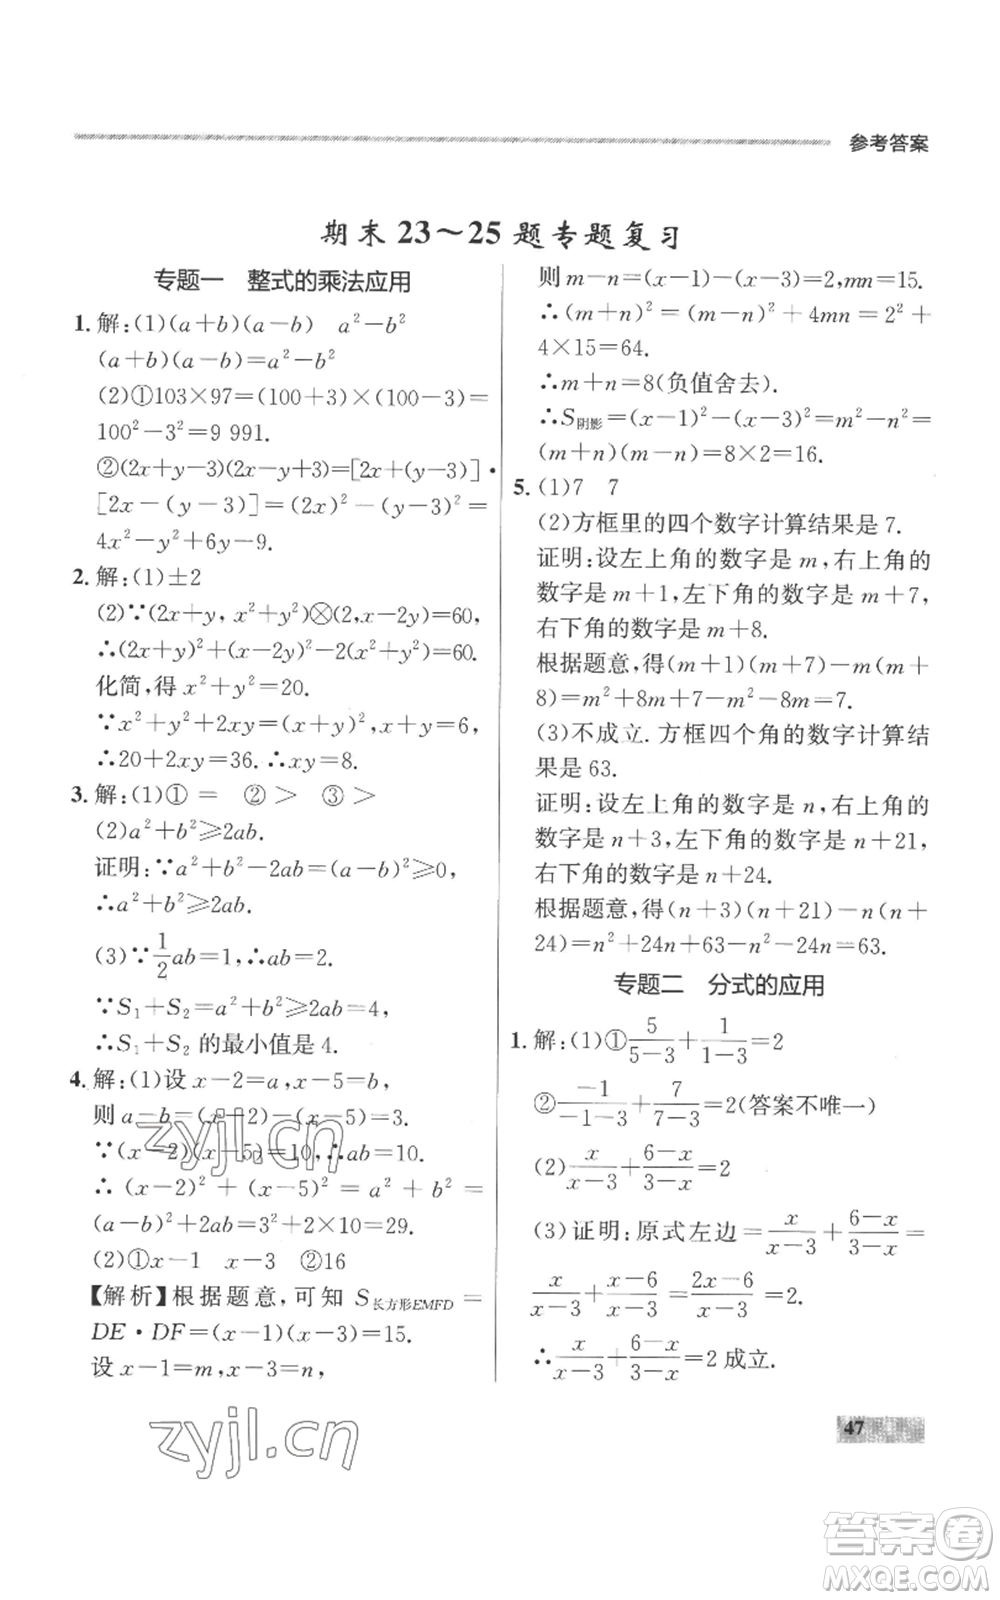 参考答案
期末 23～25 题专题复习
专题一 整式的乘法应用
1. 解:(1)(a+b)(a-b) a²-b²
(a+b)(a-b)=a²-b²
(2)①103×97=(100+3)×(100-3)=
100²-3²=9 991.
②(2x+y-3)(2x-y+3)=[2x+(y-3)]·
[2x-(y-3)]=(2x)²-(y-3)²=
4x²-y²+6y-9.
2. 解:(1)±2
(2)∵(2x+y, x²+y²)⊗(2,x-2y)=60,
∴(2x+y)²+(x-2y)²-2(x²+y²)=60.
化简,得 x²+y²=20.
∵x²+y²+2xy=(x+y)²,x+y=6,
∴20+2xy=36.∴xy=8.
3. 解:(1)① = ② > ③ >
(2)a²+b²≥2ab.
证明:∵a²+b²-2ab=(a-b)²≥0,
∴a²+b²≥2ab.
(3)∵1/2ab=1,∴ab=2.
∵S₁+S₂=a²+b²≥2ab=4,
∴S₁+S₂ 的最小值是 4.
4. 解:(1)设 x-2=a,x-5=b,
则 a-b=(x-2)-(x-5)=3.
∵(x-2)(x-5)=10,∴ab=10.
∴(x-2)²+(x-5)²=a²+b²=
(a-b)²+2ab=3²+2×10=29.
(2)①x-1 x-3 ②16
【解析】根据题意,可知 S长方形EMFD=
DE·DF=(x-1)(x-3)=15.
设 x-1=m,x-3=n,
则 m-n=(x-1)-(x-3)=2,mn=15.
∴(m+n)²=(m-n)²+4mn=2²+
4×15=64.
∴m+n=8(负值舍去).
∴S阴影=(x-1)²-(x-3)²=m²-n²=
(m+n)(m-n)=8×2=16.
5. (1)7 7
(2)方框里的四个数字计算结果是 7.
证明:设左上角的数字是 m,右上角的
数字是 m+1,左下角的数字是 m+7,
右下角的数字是 m+8.
根据题意,得(m+1)(m+7)-m(m+
8)=m²+8m+7-m²-8m=7.
(3)不成立. 方框四个角的数字计算结
果是 63.
证明:设左上角的数字是 n,右上角的
数字是 n+3,左下角的数字是 n+21,
右下角的数字是 n+24.
根据题意,得(n+3)(n+21)-n(n+
24)=n²+24n+63-n²-24n=63.
专题二 分式的应用
1. 解:(1)①5/(5-3)+1/(1-3)=2
②-1/(-1-3)+7/(7-3)=2(答案不唯一)
(2)x/(x-3)+(6-x)/(3-x)=2
(3)证明:原式左边=x/(x-3)+(6-x)/(3-x)=
x/(x-3)+(x-6)/(x-3)=(2x-6)/(x-3)=2.
∴x/(x-3)+(6-x)/(3-x)=2 成立.
zyjl.cn
zyjl.cn
47
答案卷
MXQE.COM